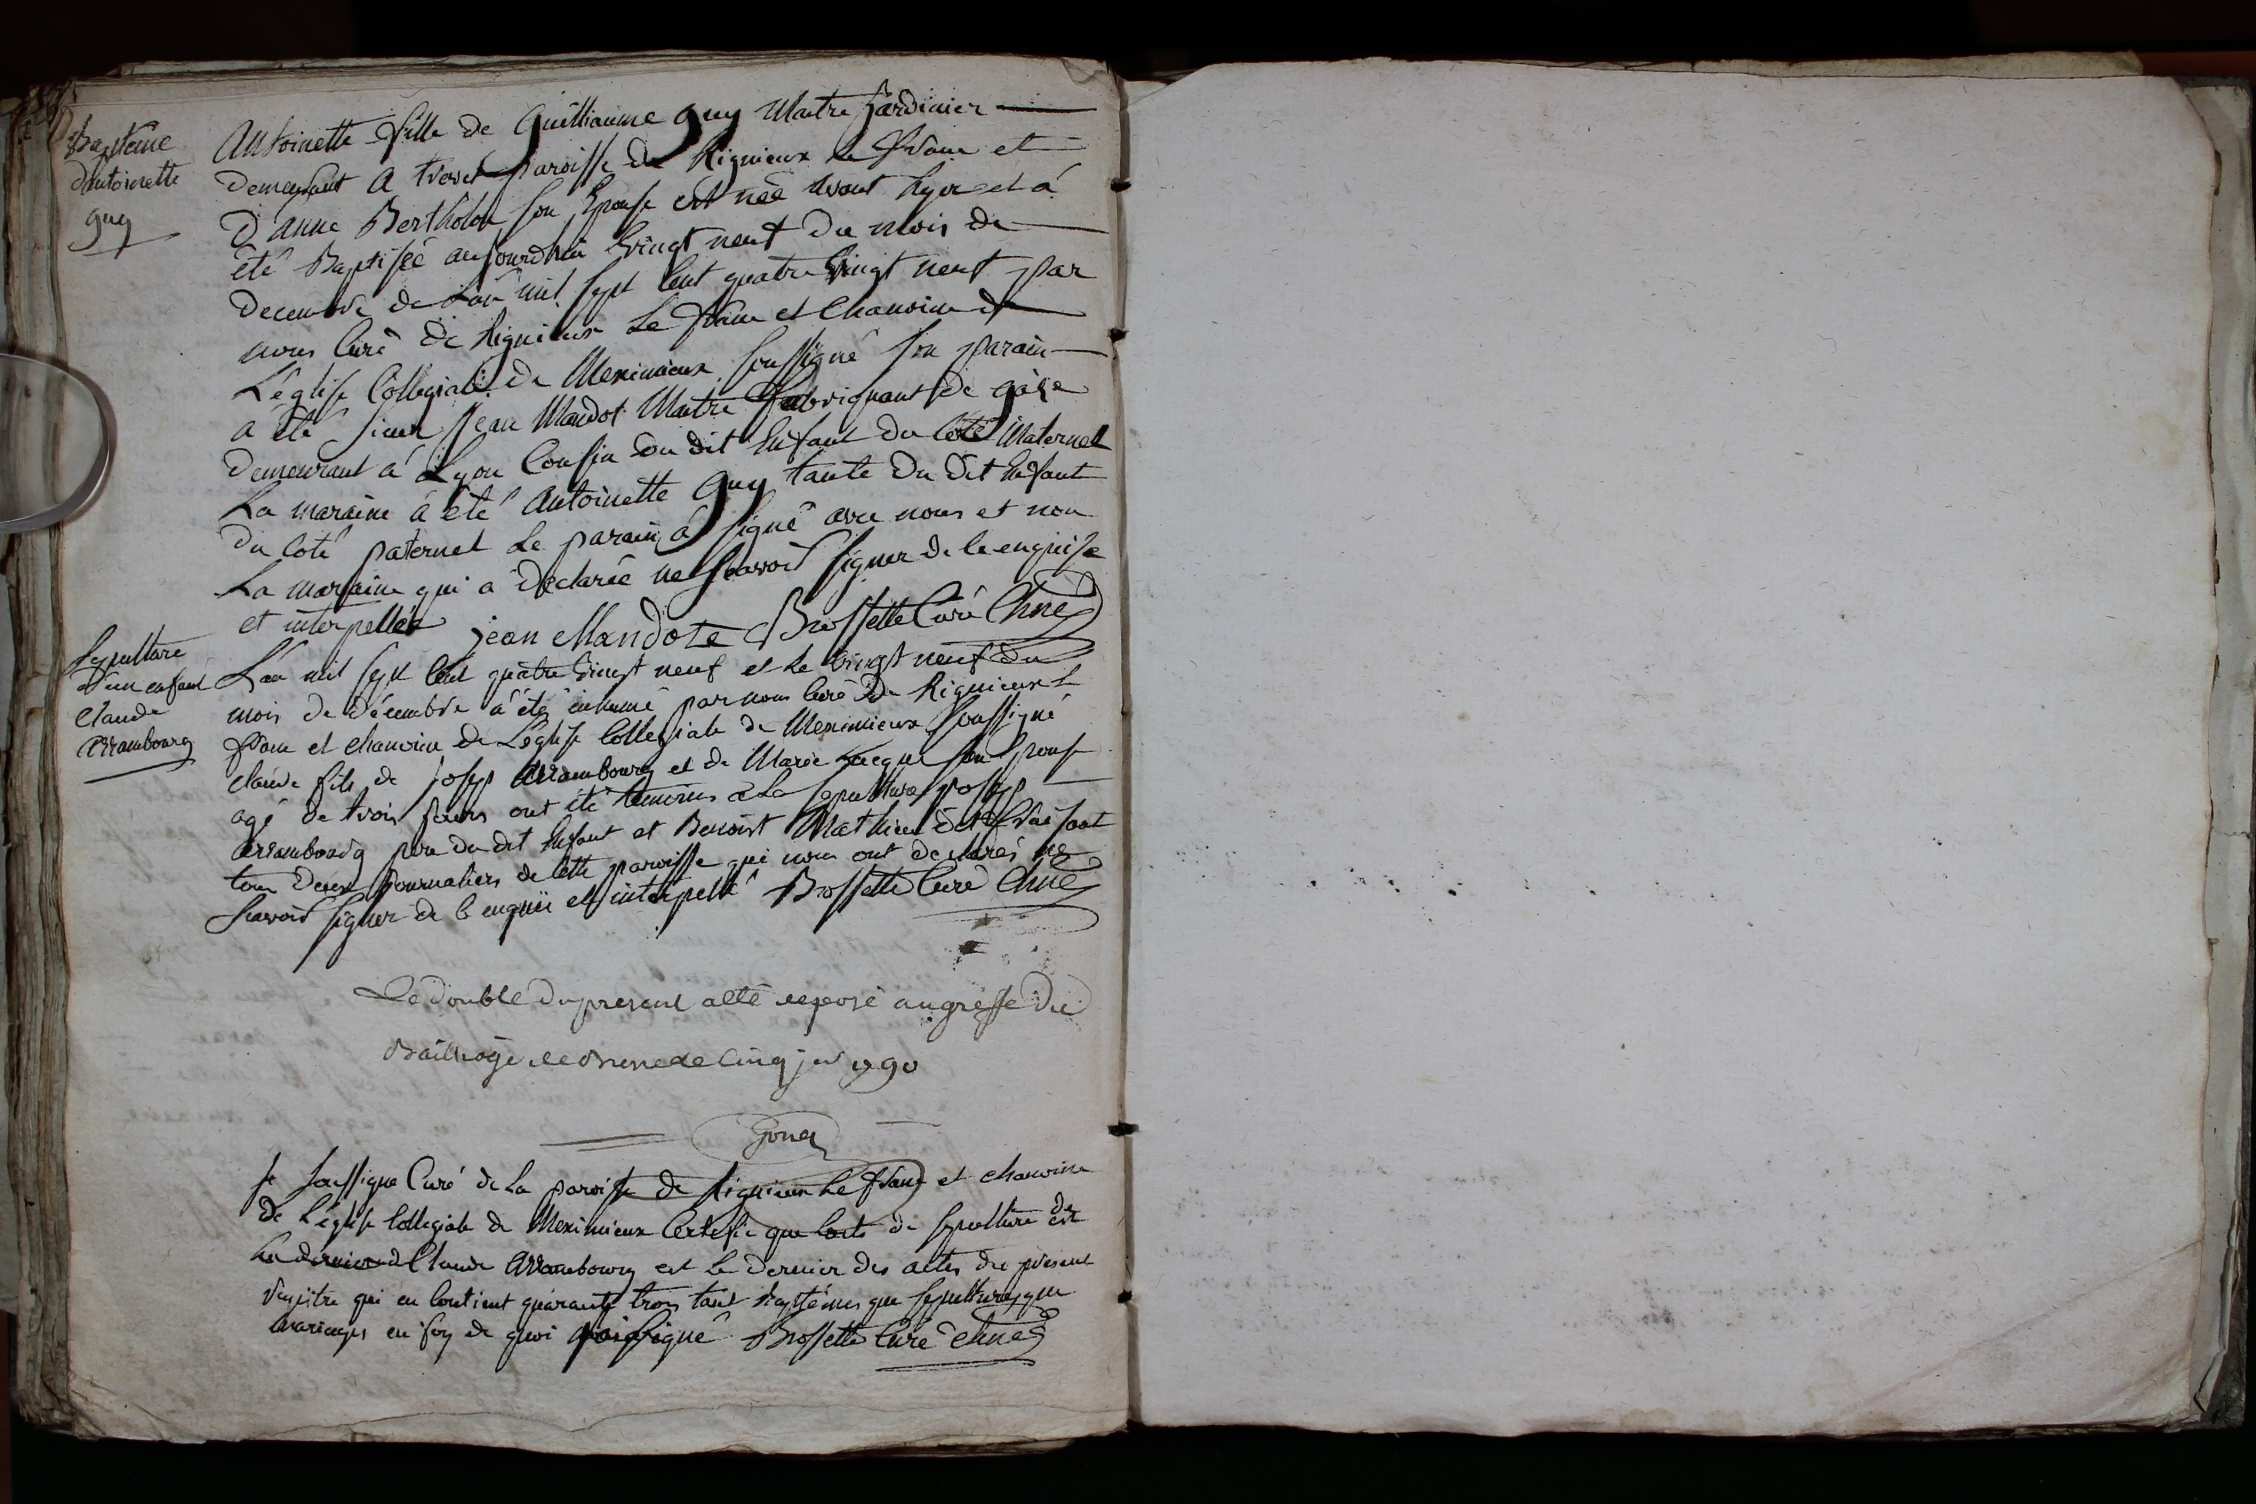 Baptême
d'antoinette
guy
Antoinette fille de Guilliaume guy Maitre Jardinier
demeurant a trevet paroisse de Rignieux le franc et
d'anne Bertholon son Epouse est née avant hyer et á
été Baptisée aujourdhui vingt neuf du mois de
decembre de L'an mil sept Cent quatre vingt neuf par
nous Curé de Rignieux Le franc et Chanoine de
L'église Collegiale de Meximieux soussigné son parain
a été sieur Jean Mandot Maitre fabriquant de gase
demeurant á Lyon Cousin du dit Enfant du Coté Maternel
La maraine á été Antoinette Guy tante du dit Enfant
du Coté paternel Le parain á signé avec nous et non
La maraine qui a déclarée ne scavoir signer de ce enquise
et interpellée jean Mandote Brossette Curé Chne
Sepulture
d'un enfant
Claude
arrambourg
L'an mil sept Cent quatre vingt neuf et le vingt neuf du
mois de décembre á été inhumé par nous Curé de Rignieux le
franc et chanoine de L'église Collegiale de Meximieux soussigné
Claude fils de Josep Arrambourg et de Marie Jacque son Epouse
agé de trois jours ont été temoins a La sepulture Josep
Arrambourg pere du dit Enfant et Benoist Mathieu dit
tous deux Journaliers de Cette paroisse qui nous ont declarés ne
scavoir signer de ce enquis et interpellé Brossette Curé Chne
Le double du present acte deposé au greffe du
Bailliage de Bresse le Cinq jer 1790
Gona
Je soussigne Curé de La paroisse de Rignieux Le franc et chanoine
de L'église Collegiale de Meximieux Certifie que l'acte de sepulture de
Claude Arrambourg est le dernier des actes du présent
registre qui en Contient quarante trois tant baptémes que sepultures que
mariages en foy de quoi j'ai signé Brossette Curé chne